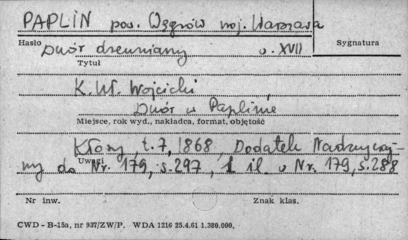 PAPLIN pow. Węgrów woj. Warszawa
Hasło
Dwór drewniany w. XVII
Sygnatura
Tytuł
K. Wł. Wojcicki
Dwór w Paplinie
Miejsce, rok wyd., nakładca, format, objętość
Kłosy, t. 7, 1868, Dodatek Nadzwyczaj-
ny do Nr. 179, s. 297, 1 il. w Nr. 179, s. 288
Uwagi
Nr inw.
Znak klas.
CWD - B-15a, nr 937/ZW/P. WDA 1216 25.4.61 1.300.000,